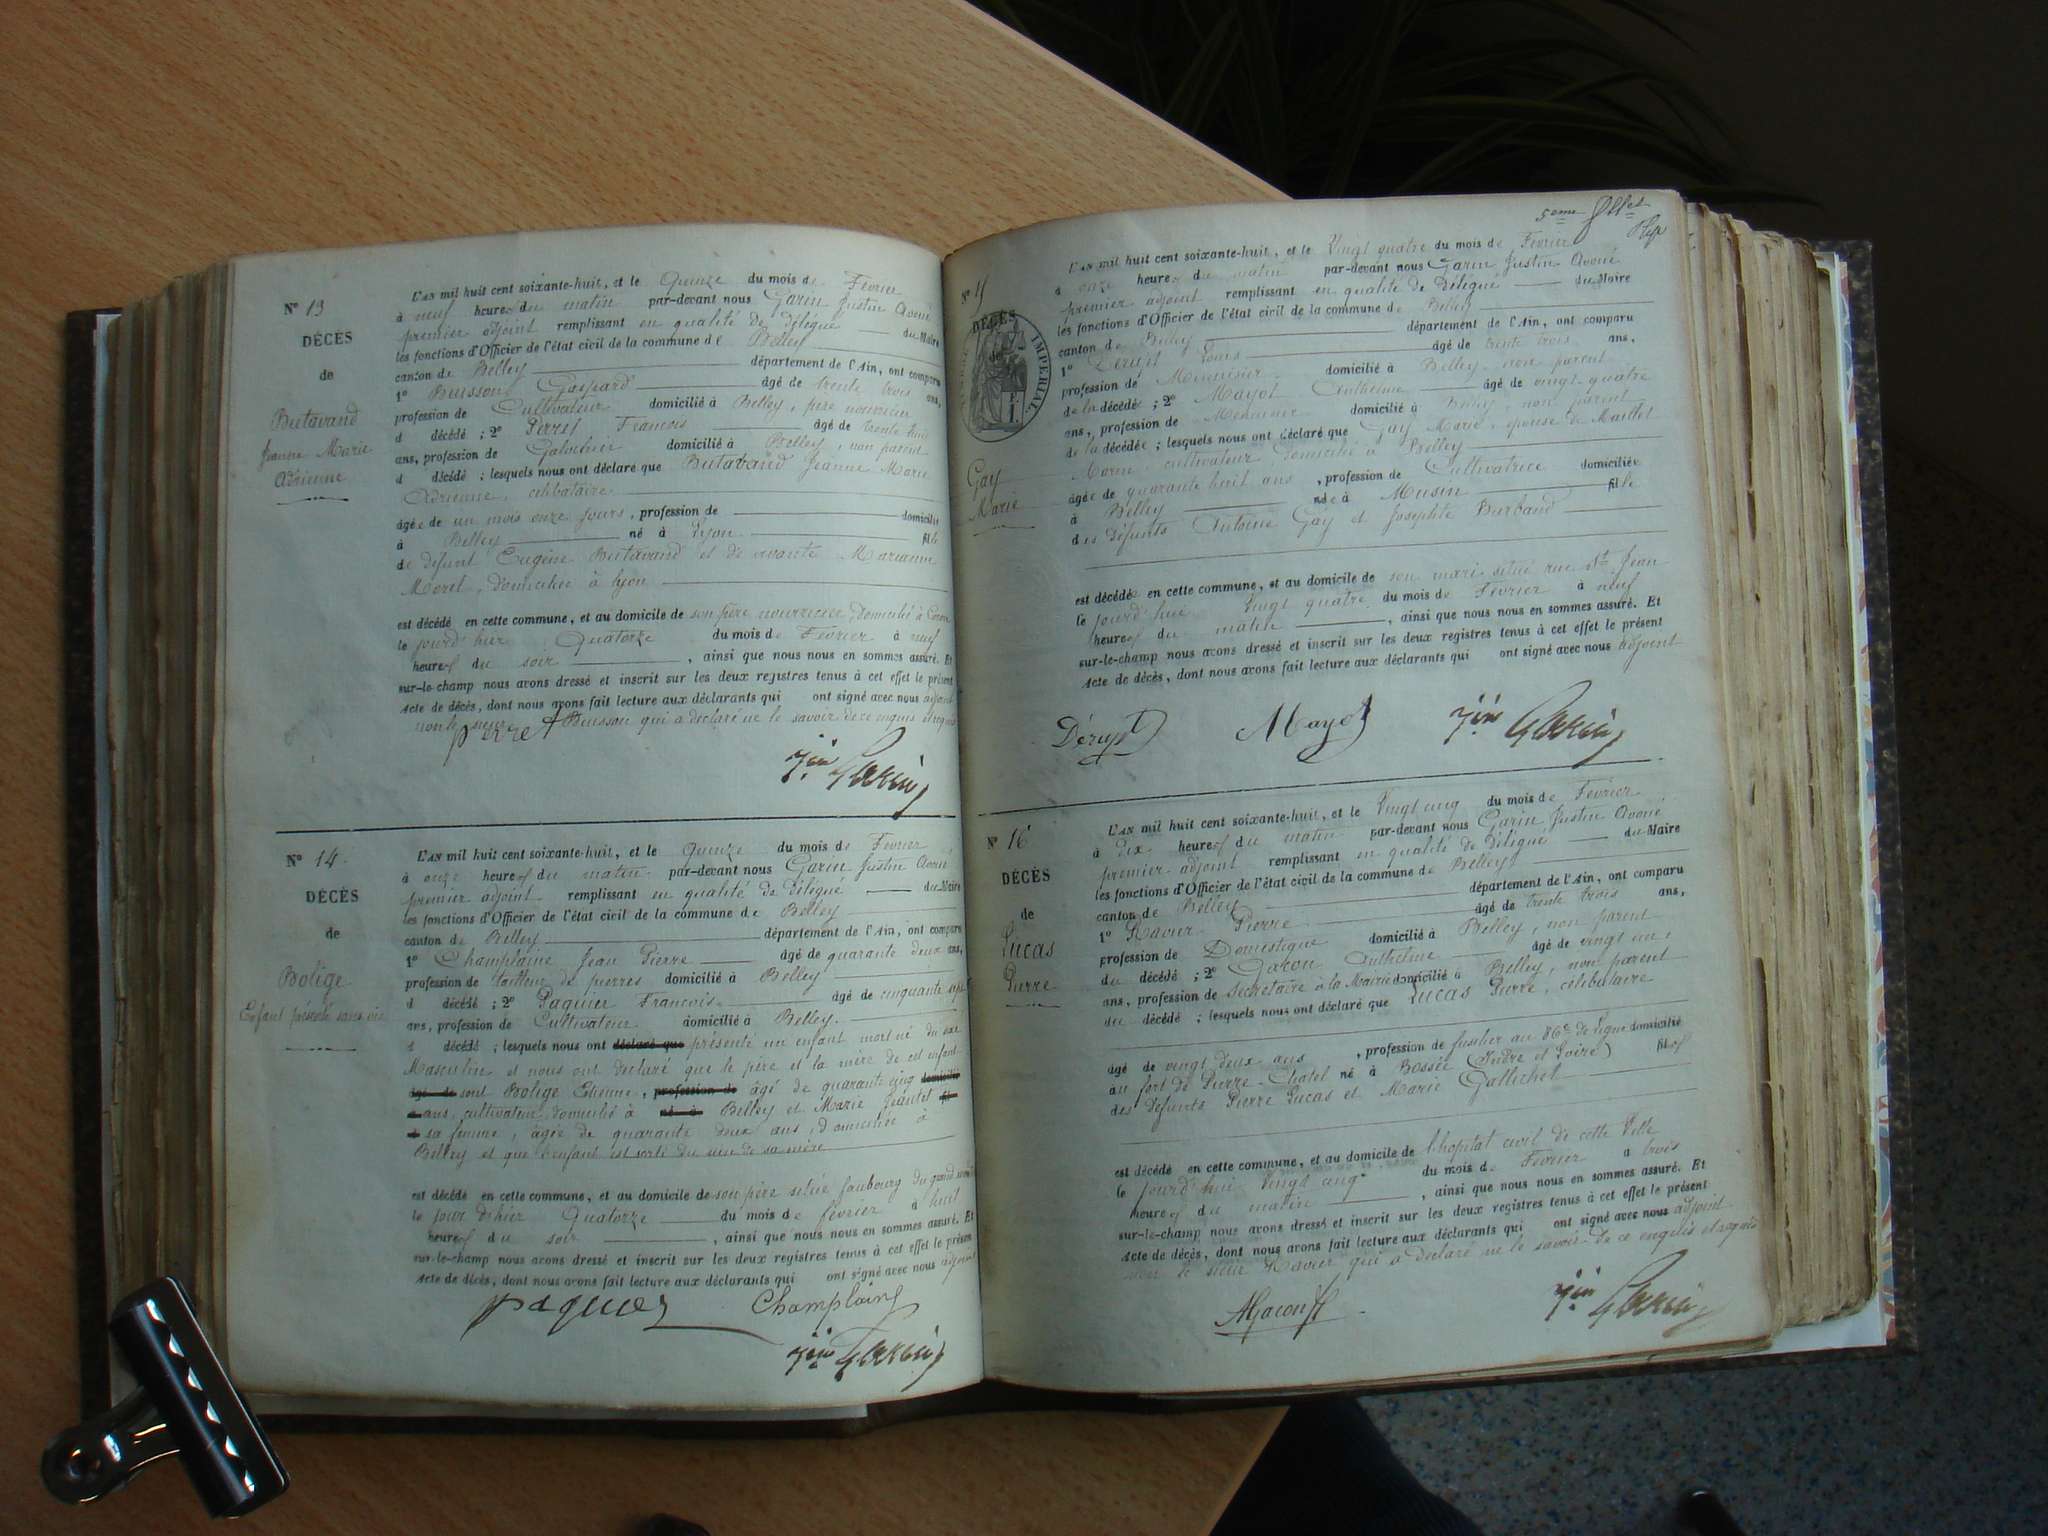 N° 13
DÉCÈS
de
Butavand
Jeanne Marie
Adrienne
L'AN mil huit cent soixante-huit, et le Quinze du mois de Février
à neuf heures du matin par-devant nous Garin Justin Avoué
premier adjoint remplissant en qualité de Délégué du Maire
les fonctions d'Officier de l'état civil de la commune de Belley
canton de Belley département de l'Ain, ont comparu
1° Buisson Gaspard âgé de trente trois ans,
profession de Cultivateur domicilié à Belley, père nourricier
d décédé ; 2° Perret François âgé de trente
ans, profession de domicilié à Belley, non parent
d décédé ; lesquels nous ont déclaré que Butavand Jeanne Marie
Adrienne, célibataire
âgée de un mois onze jours, profession de domicilié
à Belley né à Lyon fille
de défunt Eugène Butavand et de vivante Marianne
Moret, domiciliée à Lyon
est décédé en cette commune, et au domicile de son père nourricier, domicilié à
le jourd'hier Quatorze du mois de Février à neuf
heures du soir , ainsi que nous nous en sommes assuré. Et
sur-le-champ nous avons dressé et inscrit sur les deux registres tenus à cet effet le présent
acte de décès, dont nous avons fait lecture aux déclarants qui ont signé avec nous adjoint
non le sieur Buisson qui a déclaré ne le savoir de ce enquis et requis
perret
Jin Garin
N° 14
DÉCÈS
de
Bolige
Enfant présenté sans vie
L'AN mil huit cent soixante-huit, et le Quinze du mois de Février
à onze heures du matin par-devant nous Garin Justin Avoué
premier adjoint remplissant en qualité de Délégué du Maire
les fonctions d'Officier de l'état civil de la commune de Belley
canton de Belley département de l'Ain, ont comparu
1° Champlaine Jean Pierre âgé de quarante deux ans,
profession de tailleur de pierres domicilié à Belley
d décédé ; 2° Paquier François âgé de cinquante sept
ans, profession de Cultivateur domicilié à Belley.
d décédé ; lesquels nous ont déclaré que présenté un enfant mort né du sexe
Masculin et nous ont déclaré que le père et la mère de cet enfant
âgé de sont Bolige Etienne, profession de âgé de quarante cinq domicilié
à ans, cultivateur domicilié à né à Belley et Marie Jeantet fil
d sa femme, âgée de quarante deux ans, domiciliée à
Belley et que l'enfant est sorti du sein de sa mère
est décédé en cette commune, et au domicile de son père située faubourg du grand
le jour d'hier Quatorze du mois de février à huit
heures du soir , ainsi que nous nous en sommes assuré. Et
sur-le-champ nous avons dressé et inscrit sur les deux registres tenus à cet effet le présent
acte de décès, dont nous avons fait lecture aux déclarants qui ont signé avec nous adjoint
paquier Champlaine
Jin Garin
5eme
N° 15
DÉCÈS
de
IMPÉRIAL
F.
1.
Gay
Marie
L'AN mil huit cent soixante-huit, et le Vingt quatre du mois de Février
à onze heures du matin par-devant nous Garin Justin Avoué
premier adjoint remplissant en qualité de Délégué du Maire
les fonctions d'Officier de l'état civil de la commune de Belley
canton de Belley département de l'Ain, ont comparu
1° Dérupt Louis âgé de trente trois ans,
profession de Menuisier domicilié à Belley, non parent
de la décédée ; 2° Mayot Anthelme âgé de vingt-quatre
ans, profession de Menuisier domicilié à Belley, non parent
de la décédée ; lesquels nous ont déclaré que Gay Marie, épouse de
cultivateur, domicilié à Belley
âgée de quarante huit ans , profession de Cultivatrice domiciliée
à Belley née à Musin fille
des défunts Antoine Gay et Josephte Burbaud
est décédée en cette commune, et au domicile de son mari situé rue St Jean
le jourd'hui Vingt quatre du mois de Février à neuf
heures du matin , ainsi que nous nous en sommes assuré. Et
sur-le-champ nous avons dressé et inscrit sur les deux registres tenus à cet effet le présent
acte de décès, dont nous avons fait lecture aux déclarants qui ont signé avec nous adjoint
Dérupt Mayot Jin Garin
N° 16
DÉCÈS
de
Lucas
Pierre
L'AN mil huit cent soixante-huit, et le Vingt cinq du mois de Février
à dix heures du matin par-devant nous Garin Justin Avoué
premier adjoint remplissant en qualité de Délégué du Maire
les fonctions d'Officier de l'état civil de la commune de Belley
canton de Belley département de l'Ain, ont comparu
1° Ravier Pierre âgé de trente trois ans,
profession de Domestique domicilié à Belley, non parent
du décédé ; 2° Gacon Anthelme âgé de vingt un
ans, profession de Secrétaire à la Mairie domicilié à Belley, non parent
du décédé ; lesquels nous ont déclaré que Lucas Pierre, célibataire
âgé de vingt deux ans , profession de fusilier au 86e de ligne domicilié
au fort de Pierre-Chatel né à Bossée (Indre et Loire) fils
des défunts Pierre Lucas et Marie Gallichet
est décédé en cette commune, et au domicile de l'hopital civil de cette Ville
le jourd'hui Vingt cinq du mois de Février à trois
heures du matin , ainsi que nous nous en sommes assuré. Et
sur-le-champ nous avons dressé et inscrit sur les deux registres tenus à cet effet le présent
acte de décès, dont nous avons fait lecture aux déclarants qui ont signé avec nous adjoint
non le sieur Ravier qui a déclaré ne le savoir de ce enquis et requis
AGacon Jin Garin